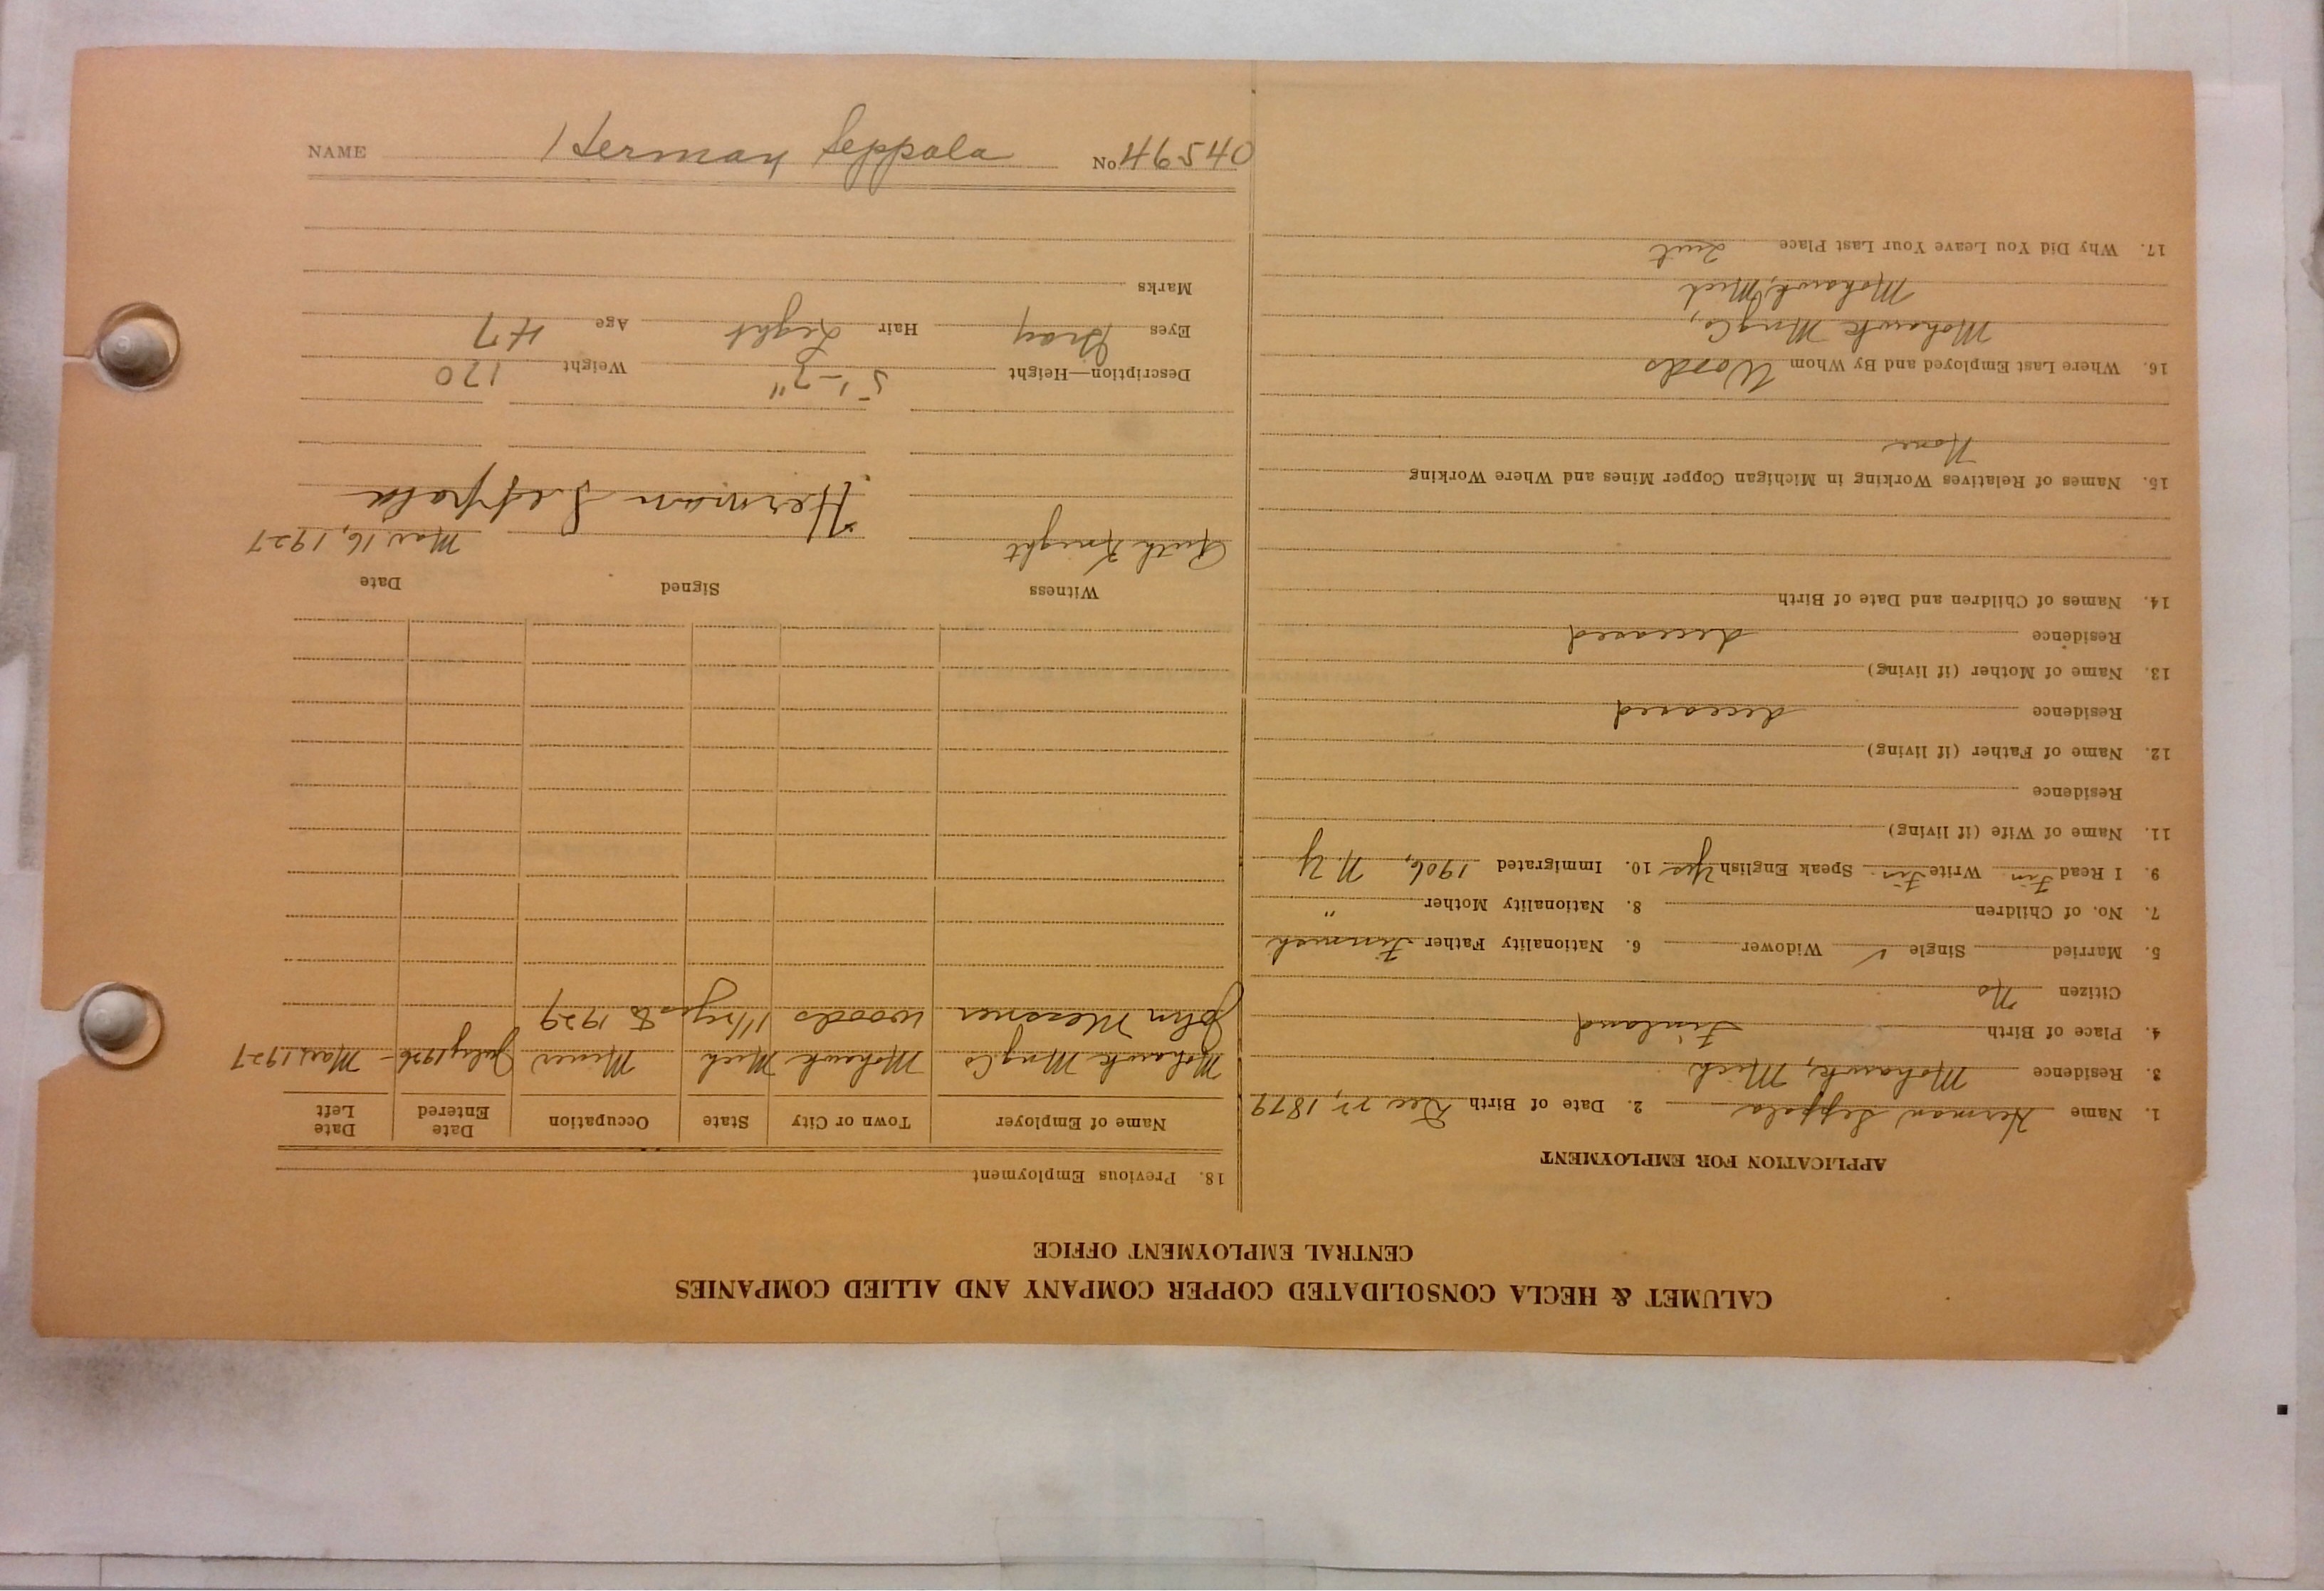 CALUMET & HECLA CONSOLIDATED COPPER COMPANY AND ALLIED COMPANIES
CENTRAL EMPLOYMENT OFFICE
APPLICATION FOR EMPLOYMENT
1. Name Herman Seppala 2. Date of Birth Dec 22, 1879
3. Residence Mohawk, Mich
4. Place of Birth Finland
Citizen No
5. Married Single ✓ Widower 6. Nationality Father Finnish
7. No. of Children 8. Nationality Mother "
9. I Read Fin Write Fin Speak English Yes 10. Immigrated 1906, N.Y
11. Name of Wife (if living)
Residence
12. Name of Father (if living)
Residence deceased
13. Name of Mother (if living)
Residence deceased
14. Names of Children and Date of Birth
15. Names of Relatives Working in Michigan Copper Mines and Where Working
None
16. Where Last Employed and By Whom Woods
Mohawk Mng Co,
Mohawk, Mich
17. Why Did You Leave Your Last Place Quit
18. Previous Employment
Name of Employer Town or City State Occupation Date Entered Date Left
Mohawk Mng Co Mohawk Mich Miner July 1926 - Mar 1927
John Messner woods 1929
Witness Signed Date
Ruth Knight Herman Seppala Mar 16, 1927
Description—Height 5'-7" Weight 170
Eyes Gray Hair Light Age 47
Marks
NAME Herman Seppala No. 46540